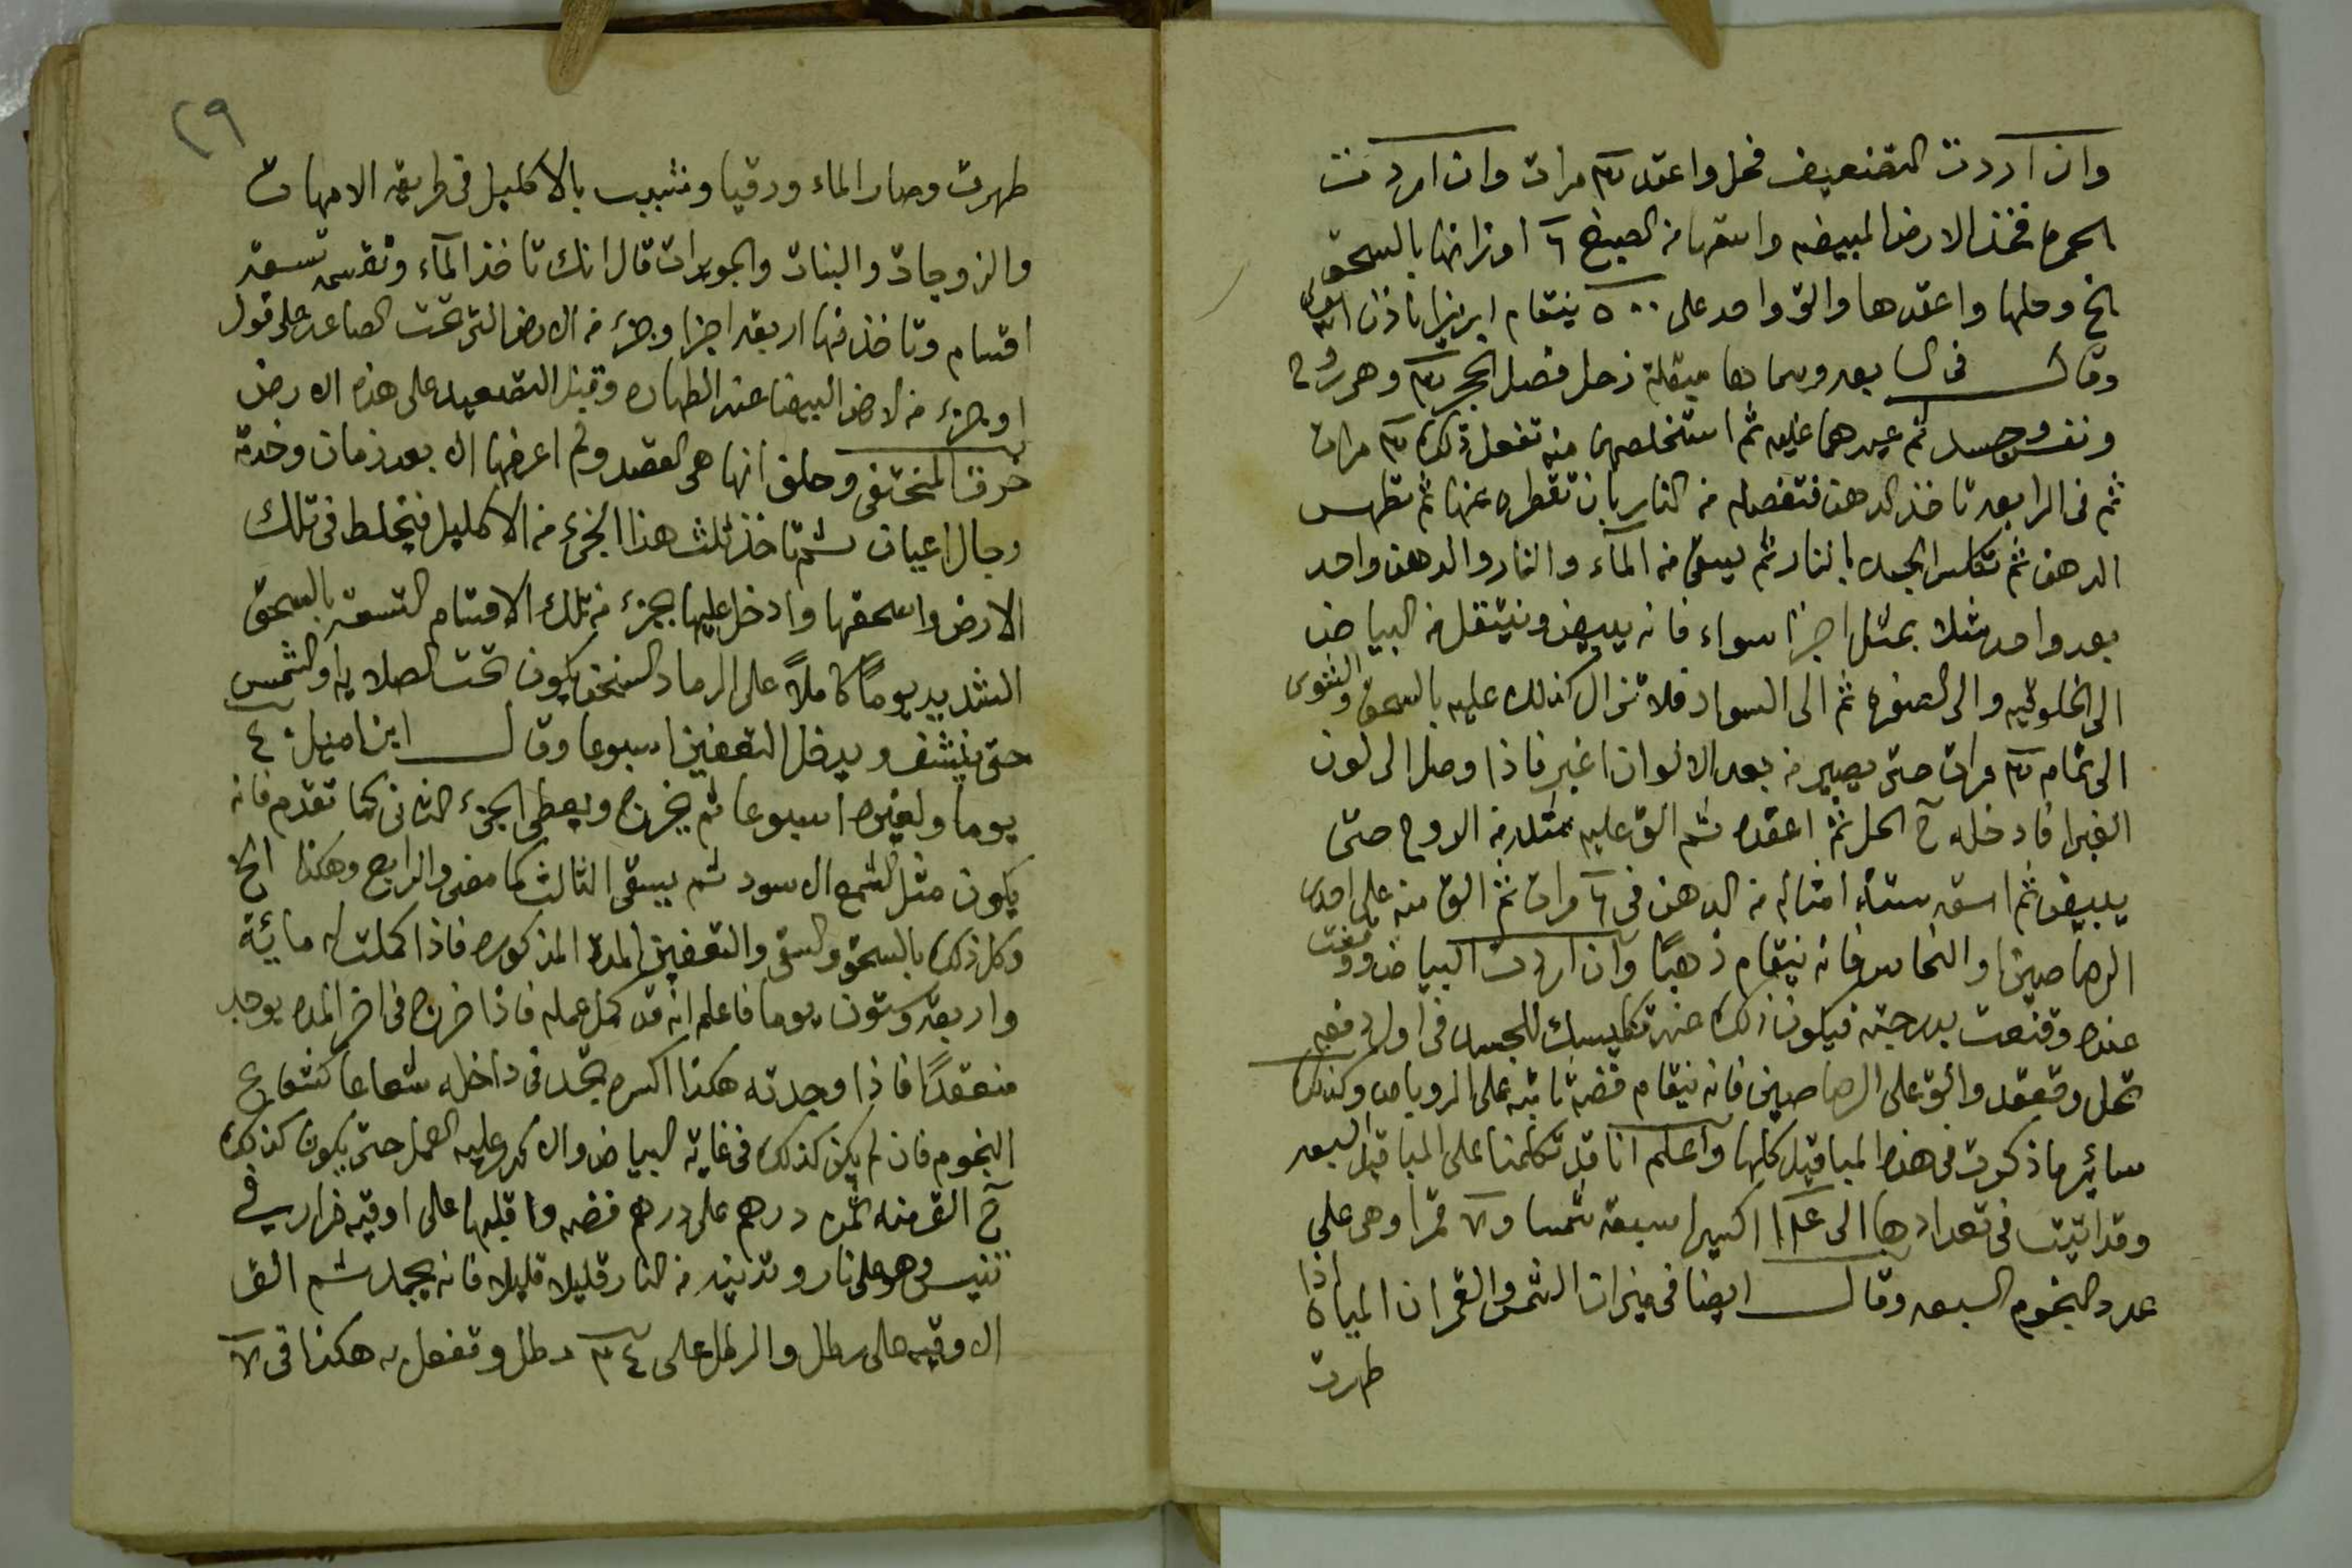 وان اردت التضعيف فحل واعقد ٣ مرات وان اردت
الحمره فخذ الارض المبيضه واسقها من الصبغ ٦ اوزانها بالسحق
الخ وحلها واعقدها والق واحد على ٥٠٠ ينقام ابريزا باذن الله
وقال فى السابعه وسمادها ميقلة زحل فصل الحجر ٣ وهم روح
ونفس وجسد ثم عيدهما عليه ثم استخلصهما منه تفعل ذلك ٣ مرات
ثم فى الرابعه تاخذ الدهن فتفصله من النار بان تقطره عنها ثم تطهر
الدهن ثم تكلس الجسد بالنار ثم يسقى من المآء والنار والدهن واحد
بعد واحد مثلا بمثل اجزا سواء فانه يبيض وينتقل من البياض
الى الخلوقيه والى الصفره ثم الى السواد فلا تزال كذلك عليه بالسحق والتشوى
الى تمام ٣ مرات حتى يصير من بعد الالوان اغبر فاذا وصل الى لون
الغبرا فادخله ح الحل ثم اعقده ثم الق عليه مثله من الروح حتى
يبيض ثم اسقه ستة امثاله من الدهن فى ٦ مرات ثم الق منه على احدى
الرصاصين والنحاس فانه ينقام ذهبًا وان اردت البياض ووقفت
عنده وقنعت بدرجته فيكون ذلك عند تكليسك للجسد فى اول دفعه
تحل وتعقد والق على الرصاصين فانه ينقام فضه ثابته على الروباص وكذلك
سائر ما ذكرت فى هذه المياقيل كلها وآعلم انا قد تكلمنا على المياقيل السبعه
وقد اتيت فى تعدادها الى ١٤ اكسيرا سبعة شمسا و٧ قمرا وهى على
عدد النجوم السبعه وقال ايضا فى ميزان الشمس والقمر ان المياه اذا
طهرت
٢٩
طهرت وصار الماء ورقيا ونشبب بالاكليل فى طريقه الامهات
والزوجات والبنات والجويرات قال انك تاخذ المآء وتقسمه تسعة
اقسام وتاخذ منها اربعه اجزا وجزء من الارض التى تحت الصاعد على قول
او جزء من الارض البيضا عند الطهاره وقيل التصعيد على هذه الارض
حرف المختفى وحلق انها هى القصد ولم اعرفها الا بعد زمان وخدمة
رجال اعيان ثم تاخذ ثلث هذا الجزء من الاكليل فيخلط فى تلك
الارض واسحقها وادخل عليها بجزء من تلك الاقسام التسعه بالسحق
الشديد يومًا كاملاً على الرماد السخن يكون تحت الصلايه او الشمس
حتى ينشف ويدخل التعفين اسبوعا وقال ابن اميل ٤٠
يوما ولغيره اسبوعا ثم يخرج ويعطى الجزء الثانى كما تقدم فانه
يكون مثل الشمع الاسود ثم يسقى الثالث كما مضى والرابع وهكذا الخ
وكل ذلك بالسحق والسقى والتعفين المدة المذكوره فاذا كملت له مائية
واربعة وستون يوما فاعلم انه قد كمل عمله فاذا خرج فى اخر المده يوجد
منعقدًا فاذا وجدته هكذا اكسره تجد فى داخله شعاعا كشعاع
النجوم فان لم يكن كذلك فى غاية البياض والا كرر عليه العمل حتى يكون كذلك
ح الق منه ثمن درهم على درهم فضه واقلبها على اوقيه فرار فى
تنيس وهو على نار وتدنيه من النار قليلا قليلا فانه يجمد ثم الق
الاوقيه على رطل والرطل على ٣٤ رطل وتفعل به هكذا فى ٧